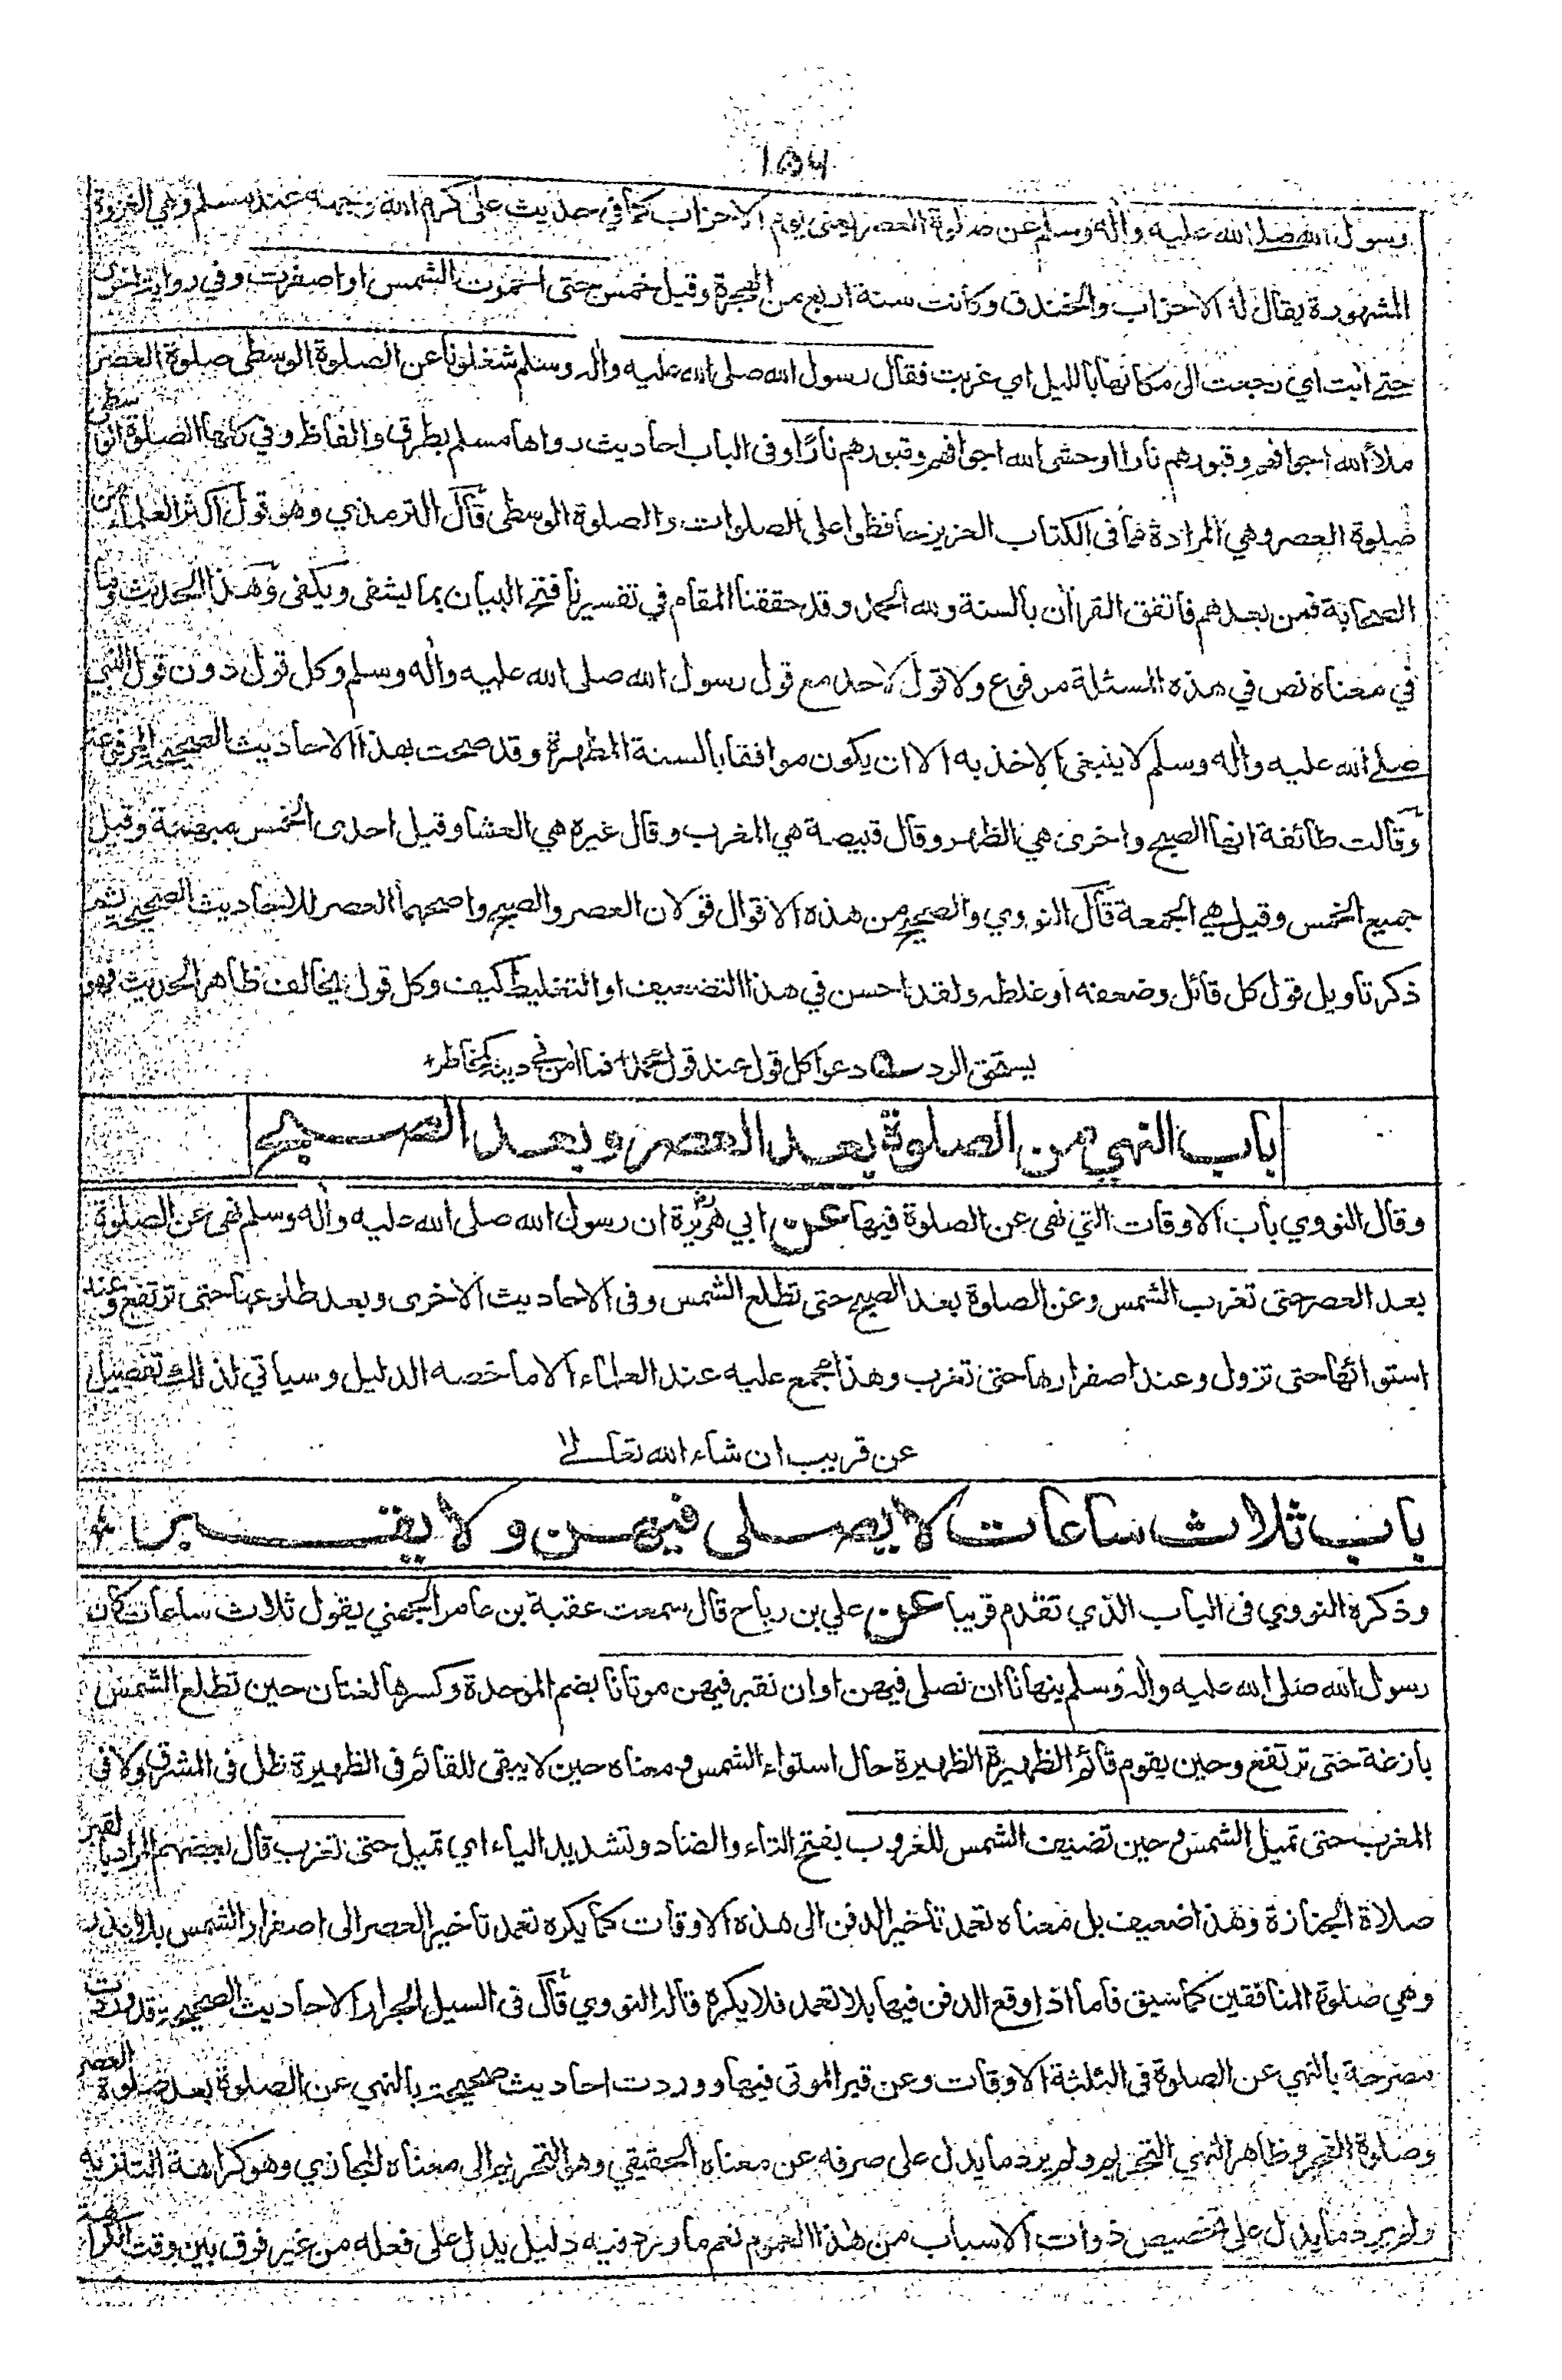 ١٥٦
رسول الله صلى الله عليه واٰله وسلم عن صلوة العصر يعني يوم الاحزاب كما في حديث علي كرم الله وجهه عند مسلم وهي الغزوة
المشهورة يقال لها الاحزاب والخندق وكانت سنة اربع من الهجرة وقيل خمس حتى احمرت الشمس او اصفرت وفي رواية اخرى
حتى اٰبت اي رجعت الى مكانها بالليل اي غربت فقال رسول الله صلى الله عليه واٰله وسلم شغلونا عن الصلوة الوسطى صلوة العصر
ملأ الله اجوافهم وقبورهم نارا او حشى الله اجوافهم وقبورهم نارًا وفى الباب احاديث رواها مسلم بطرق والفاظ وفي كلها الصلوة الوسطى
صلوة العصر وهي المرادة مما فى الكتاب العزيز حافظوا على الصلوات والصلوة الوسطى قال الترمذي وهو قول اكثر العلماء من
الصحابة فمن بعدهم فاتفق القراٰن بالسنة ولله الحمد وقد حققنا المقام في تفسيرنا فتح البيان بما يشفى ويكفى وهذا الحديث وما
في معناه نص في هذه المسئلة مرفوع ولا قول لاحد مع قول رسول الله صلى الله عليه واٰله وسلم وكل قول دون قول النبي
صلى الله عليه واٰله وسلم لا ينبغي الاخذ به الا ان يكون موافقا بالسنة المطهرة وقد صحت بهذا الاحاديث الصحيحة المرفوعة
وقالت طائفة انها الصبح واخرى هي الظهر وقال قبيصة هي المغرب وقال غيره هي العشا وقيل احدى الخمس مبهمة وقيل
جميع الخمس وقيل هي الجمعة قال النووي والصحيح من هذه الاقوال قولان العصر والصبح واصحهما العصر للاحاديث الصحيحة ثم
ذكر تاويل قول كل قائل وضعفه او غلطه ولقد احسن في هذا التضعيف او التغليط كيف وكل قول يخالف ظاهر الحديث فهو
يستحق الرد دعوا كل قول عند قول محمد + فما اٰمن في دينه كمخاطر +
باب النهي عن الصلوة بعد العصر وبعد الصبح
وقال النووي باب الاوقات التي نهى عن الصلوة فيها عن ابي هريرة رض ان رسول الله صلى الله عليه واٰله وسلم نهى عن الصلوة
بعد العصر حتى تغرب الشمس وعن الصلوة بعد الصبح حتى تطلع الشمس وفى الاحاديث الاخرى وبعد طلوعها حتى ترتفع وعند
استوائها حتى تزول وعند اصفرارها حتى تغرب وهذا مجمع عليه عند العلماء الا ما خصه الدليل وسياتي لذلك تفصيل
عن قريب ان شاء الله تعالى
باب ثلاث ساعات لا يصلى فيهن ولا يقبر +
وذكره النووي فى الباب الذي تقدم قريبا عن علي بن رباح قال سمعت عقبة بن عامر الجهني يقول ثلاث ساعات كان
رسول الله صلى الله عليه واٰله وسلم ينهانا ان نصلى فيهن او ان نقبر فيهن موتانا بضم الموحدة وكسرها لغتان حين تطلع الشمس
بازغة حتى ترتفع وحين يقوم قائم الظهيرة الظهيرة حال استواء الشمس ومعناه حين لا يبقى للقائم فى الظهيرة ظل فى المشرق ولا فى
المغرب حتى تميل الشمس وحين تضيف الشمس للغروب بفتح التاء والضاد وتشديد الياء اي تميل حتى تغرب قال بعضهم المراد بالقبر
صلاة الجنازة وهذا ضعيف بل معناه تعمد تاخير الدفن الى هذه الاوقات كما يكره تعمد تاخير العصر الى اصفرار الشمس بلا عذر
وهي صلوة المنافقين كما سبق فاما اذا وقع الدفن فيها بلا تعمد فلا يكره قاله النووي قال فى السيل الجرار الاحاديث الصحيحة قد وردت
مصرحة بالنهي عن الصلوة فى الثلثة الاوقات وعن قبر الموتى فيها ووردت احاديث صحيحة بالنهي عن الصلوة بعد صلوة العصر
وصلوة الفجر وظاهر النهي التحريم ولم يرد ما يدل على صرفه عن معناه الحقيقي وهو التحريم الى معناه المجازي وهو كراهة التنزيه
ولم يرد ما يدل على تخصيص ذوات الاسباب من هذا العموم نعم ما ورد فيه دليل يدل على فعله من غير فرق بين وقت الكراهة